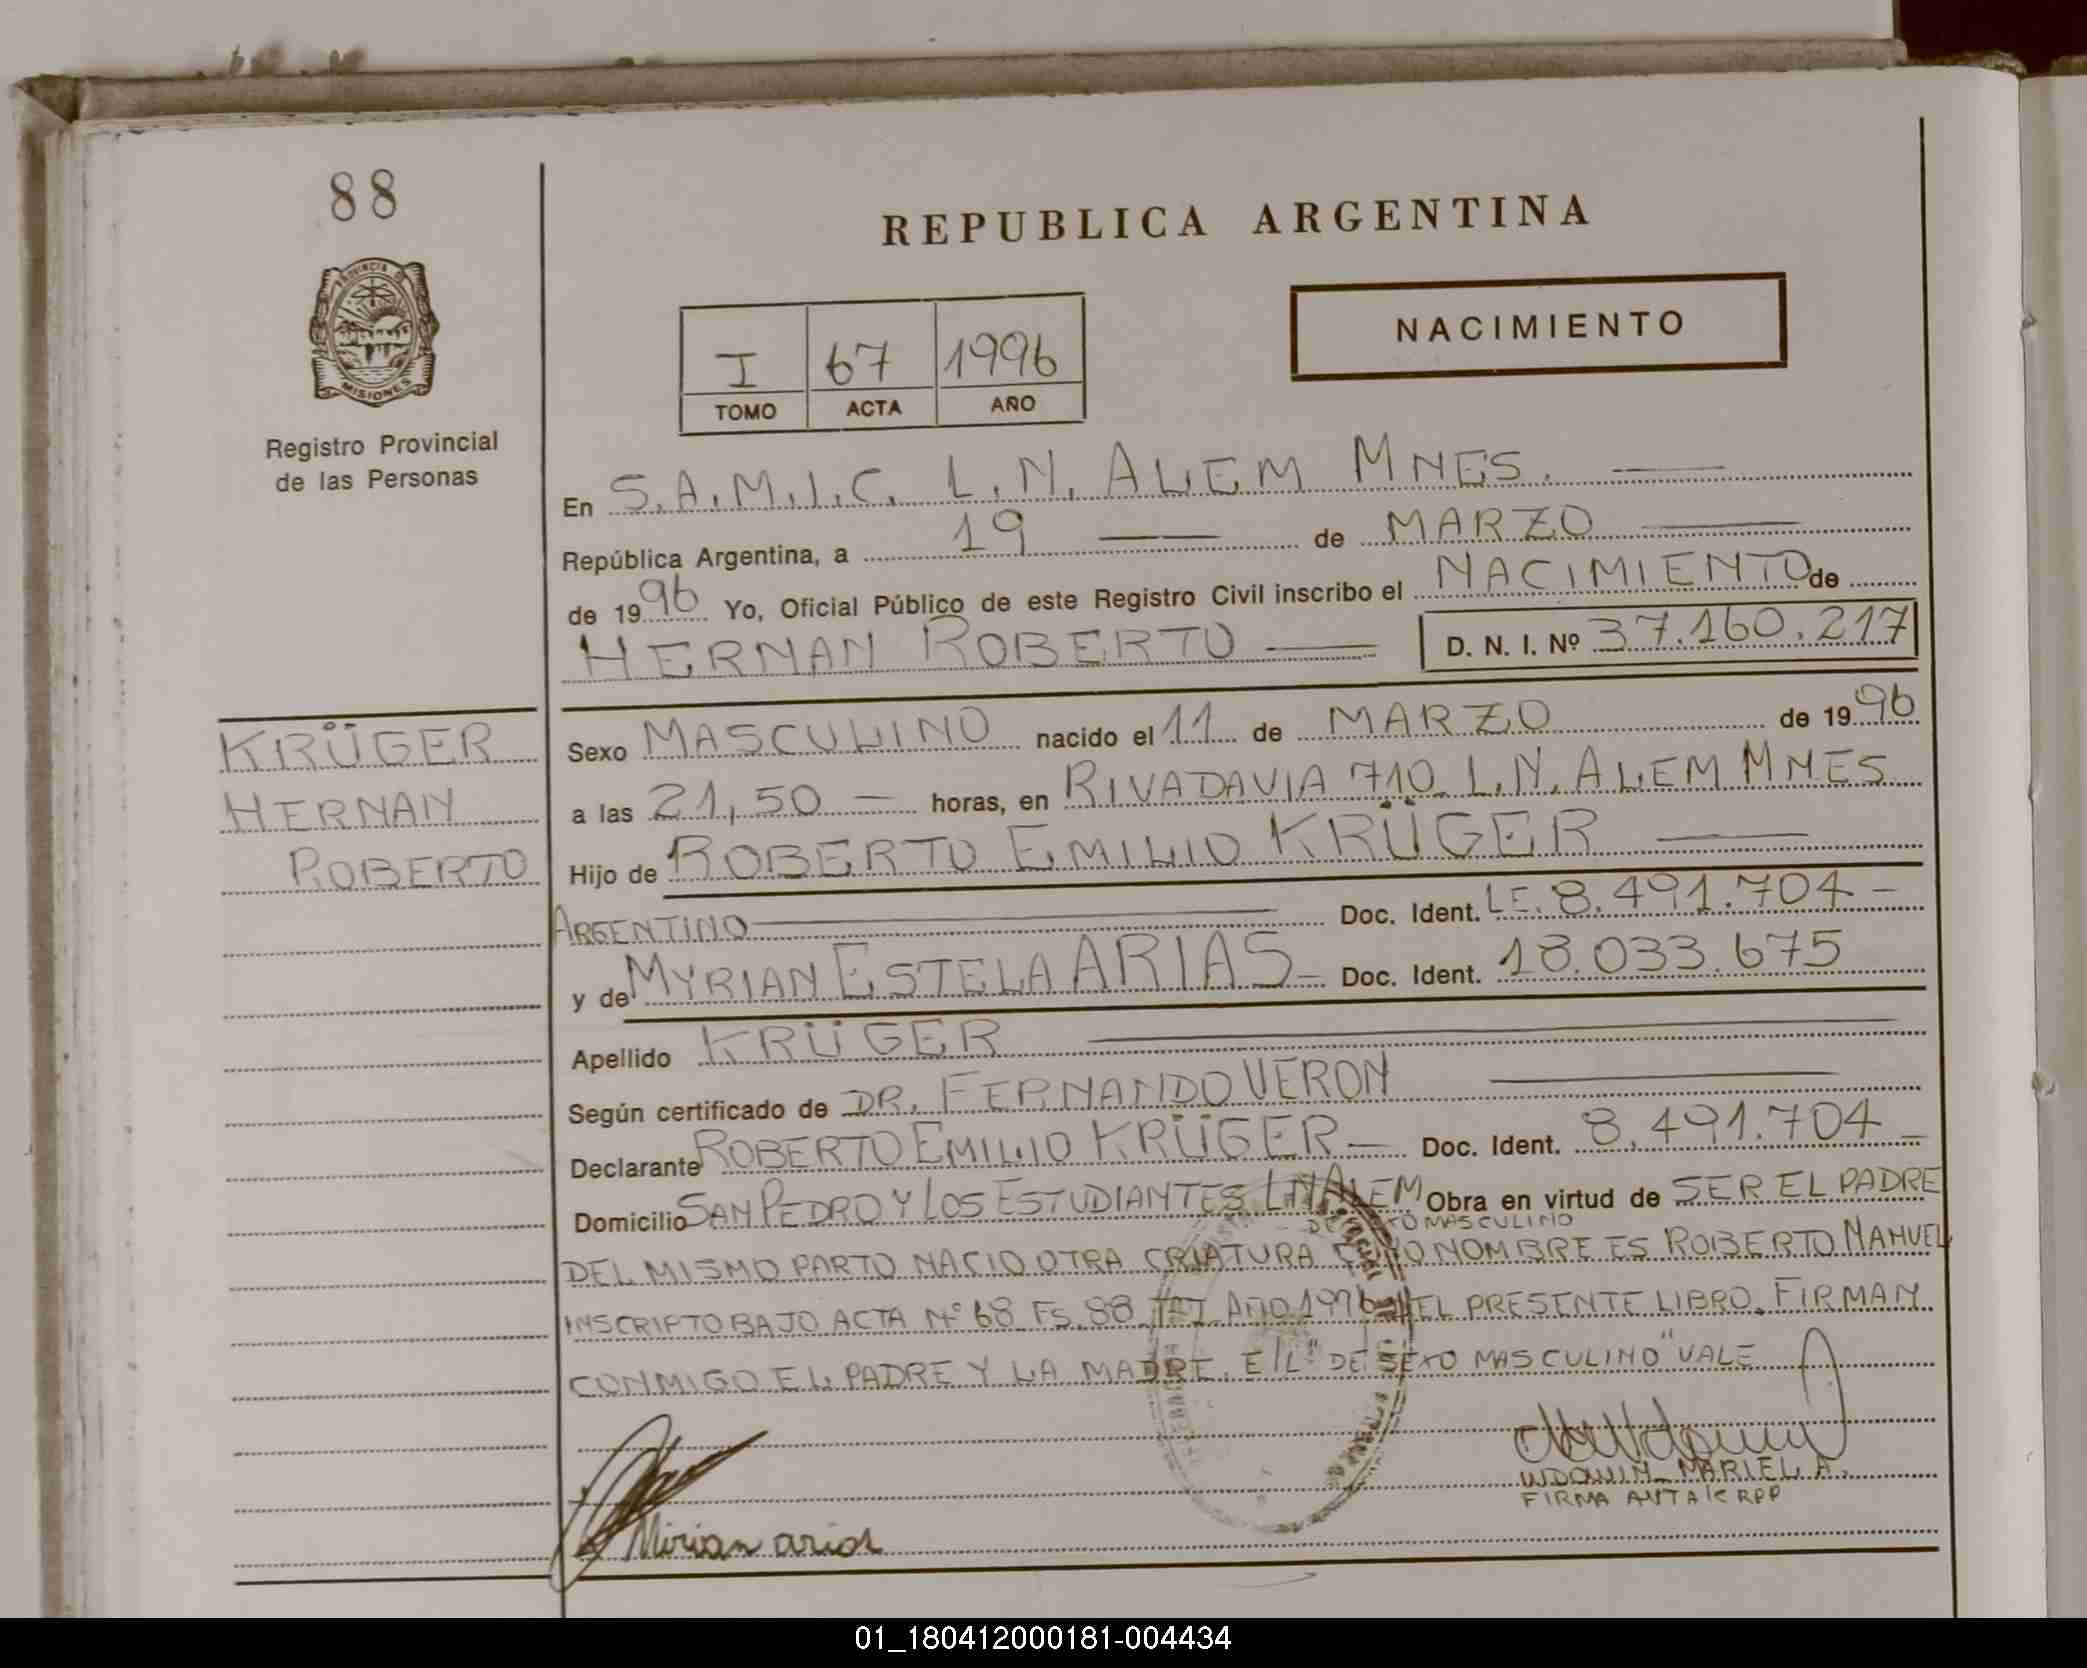 88
REPUBLICA ARGENTINA
PROVINCIA DE
MISIONES
Registro Provincial
de las Personas
I 67 1996
TOMO ACTA AÑO
NACIMIENTO
En S.A.M.I.C. L.N. ALEM MNES.
República Argentina, a 19 de MARZO
de 1996 Yo, Oficial Público de este Registro Civil inscribo el NACIMIENTO de
HERNAN ROBERTO D. N. I. Nº 37.160.217
KRÜGER
HERNAN
ROBERTO
Sexo MASCULINO nacido el 11 de MARZO de 1996
a las 21,50 horas, en RIVADAVIA 710 L.N. ALEM MNES
Hijo de ROBERTO EMILIO KRÜGER
ARGENTINO Doc. Ident. LE. 8.491.704
y de MYRIAN ESTELA ARIAS Doc. Ident. 18.033.675
Apellido KRÜGER
Según certificado de DR. FERNANDO VERON
Declarante ROBERTO EMILIO KRÜGER Doc. Ident. 8.491.704
Domicilio SAN PEDRO Y LOS ESTUDIANTES L.N.ALEM Obra en virtud de SER EL PADRE
DE SEXO MASCULINO
DEL MISMO PARTO NACIO OTRA CRIATURA CUYO NOMBRE ES ROBERTO NAHUEL
INSCRIPTO BAJO ACTA Nº 68 FS. 88 Tº I AÑO 1996 DEL PRESENTE LIBRO. FIRMAN
CONMIGO EL PADRE Y LA MADRE. E/L "DE SEXO MASCULINO" VALE
MARIEL A.
FIRMA AUTA
Mirian arias
01_180412000181-004434